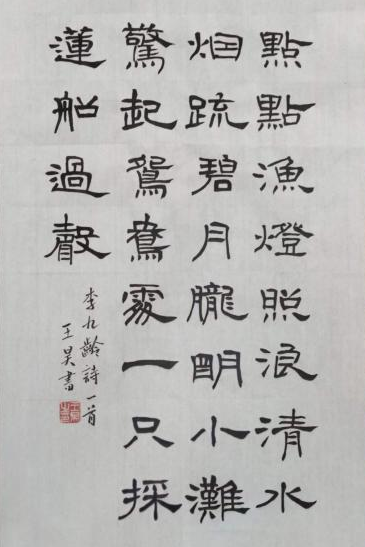 點點漁燈照浪清水
烟疏碧月朧明小灘
驚起鴛鴦處一只採
蓮船過聲
李九齡詩一首
王昊書